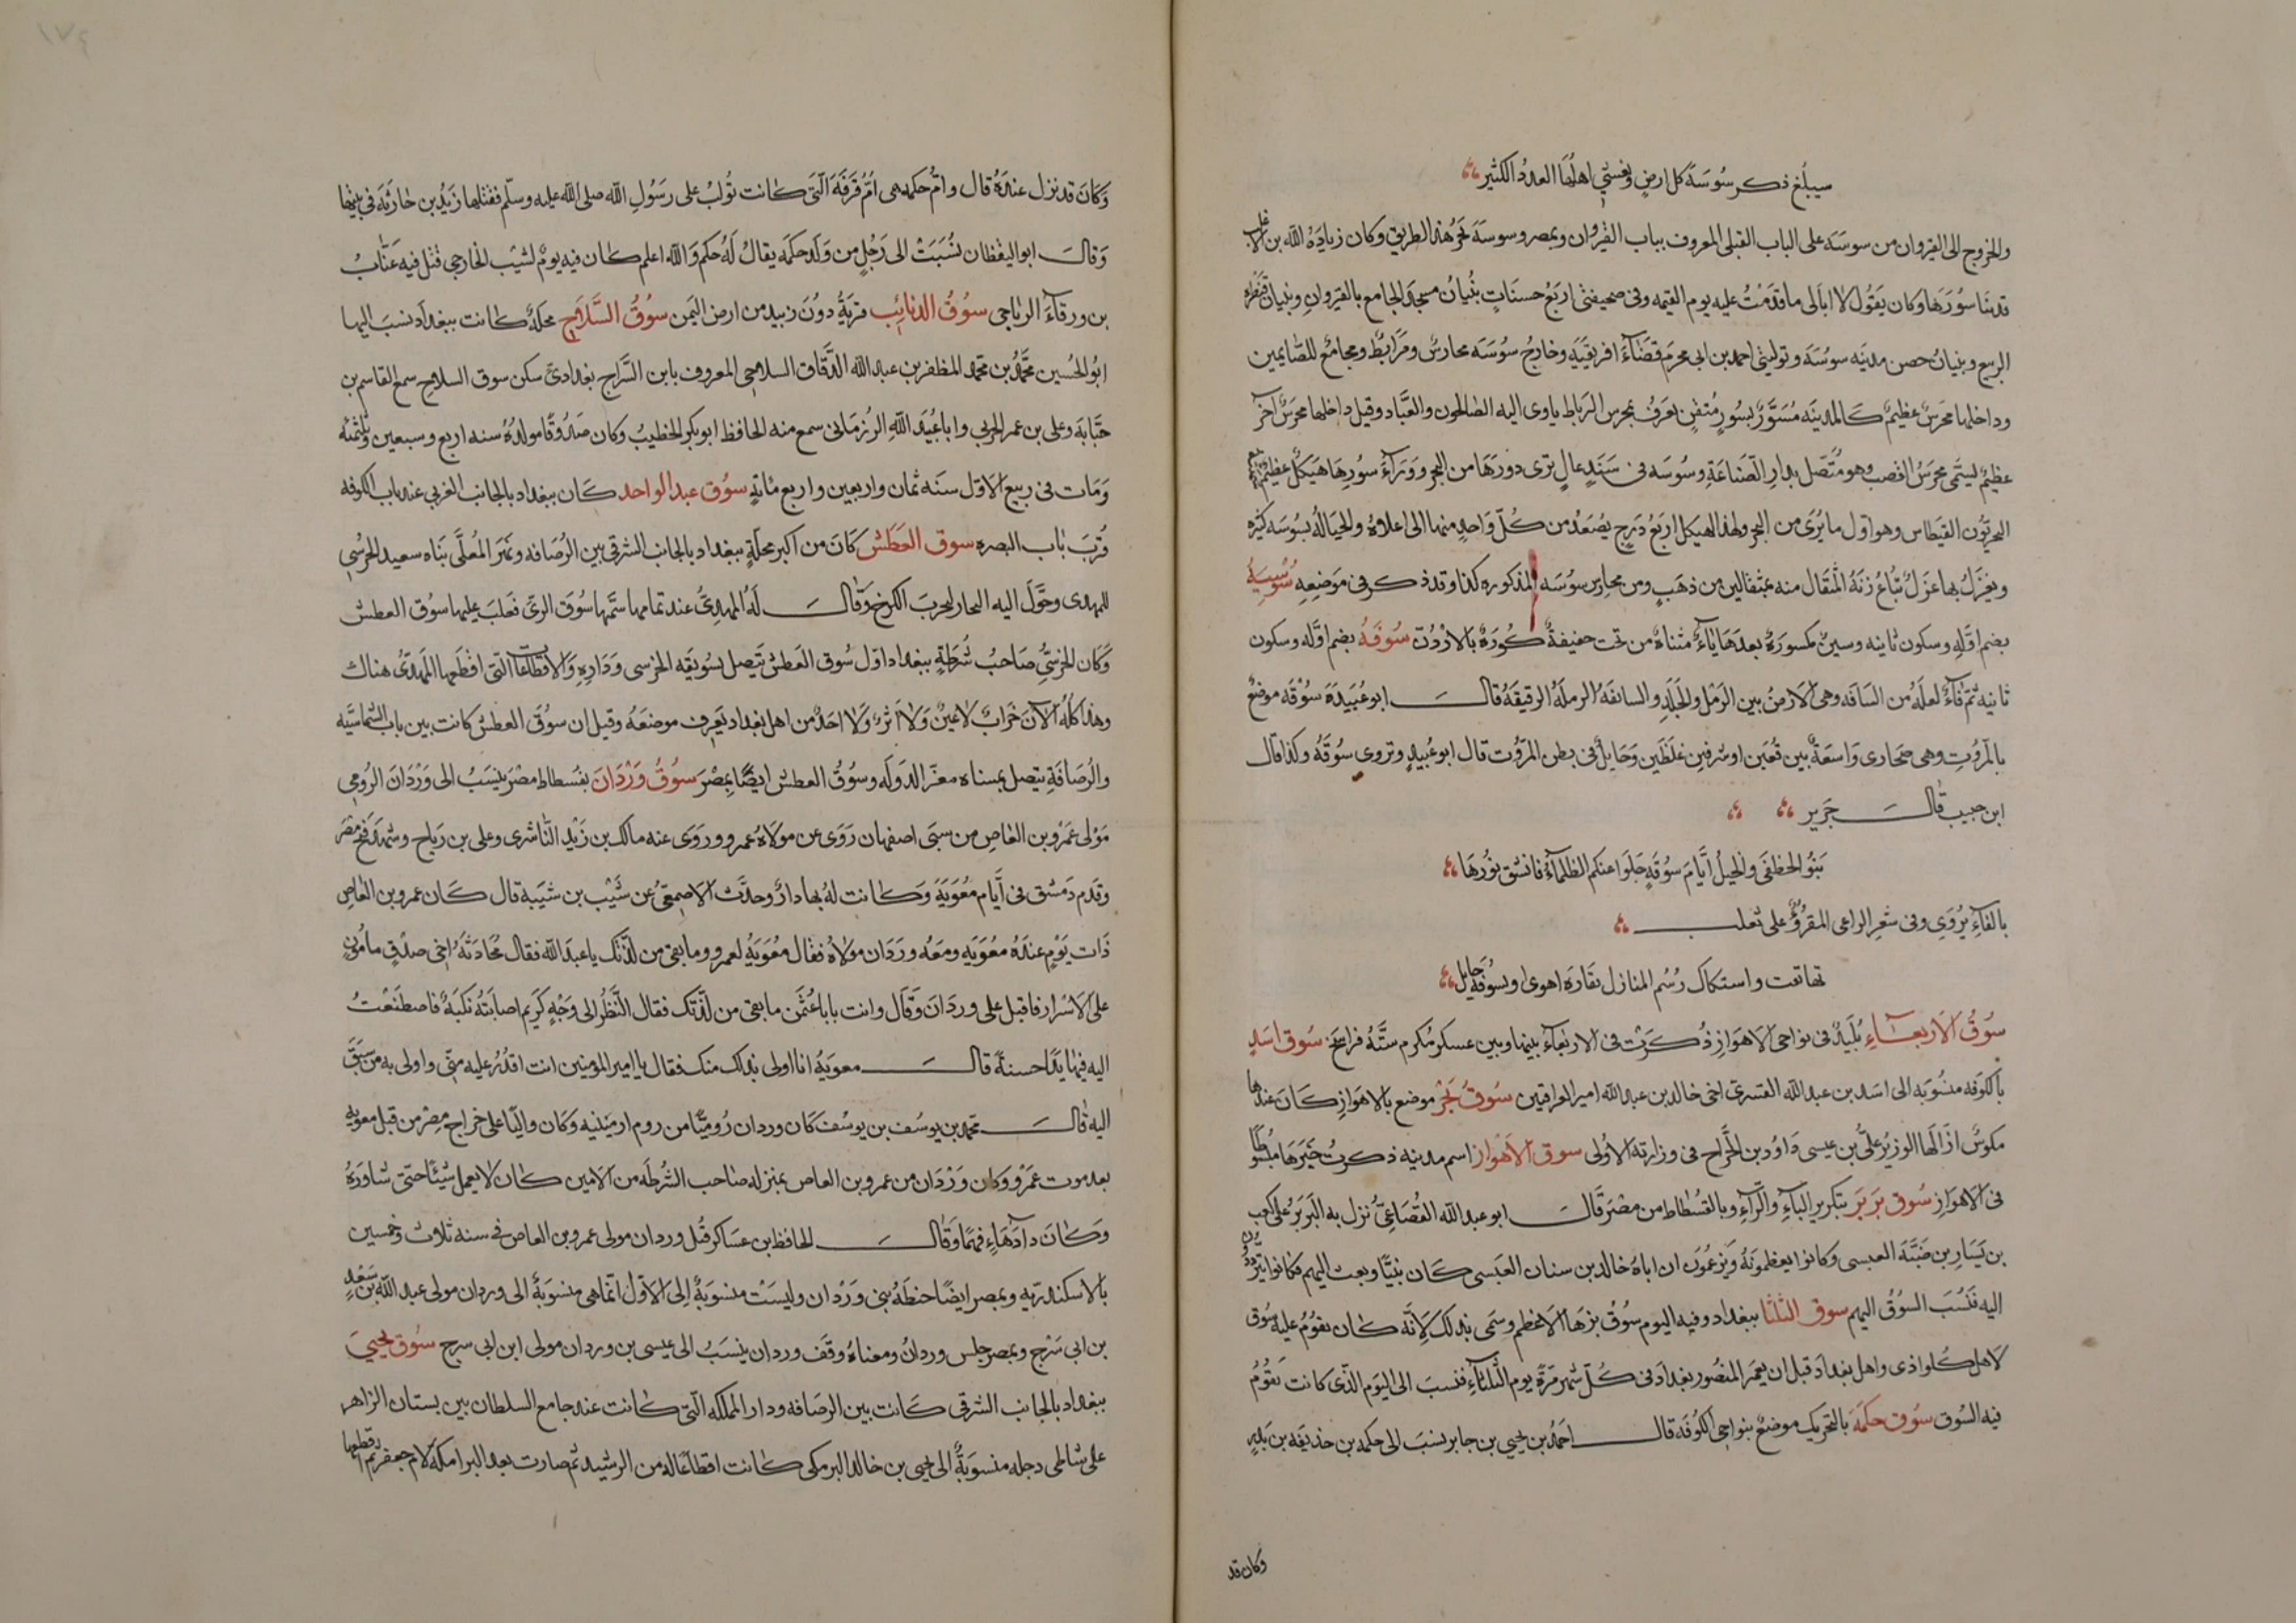 سيبلغ ذكر سُوسَة كل ارضٍ ويغشي اهلُها العددُ الكثير
والخروج الى القيروان من سوسَه على الباب القبلى المعروف بباب القيروان وبمصر وسوسة نحرُ هذا الطريق وكان زيادَةُ الله بن الاغلب
قد بنَا سُورَهَا وكان يَقُول لا اباَلى ما قدَمْتُ عليه يوم القيمه وفى صحيفتى اربَعُ حسنَاتٍ بُنيانُ مسجدَ الجامع بالقيروانِ وبنيان قنطره
الربيع وبنيانُ حصن مدينه سوسُه وتوليتى احمد بن ابى محرم قضَاءَ افريقيَه وخارجُ سُوسَه محارسُ ومَرَابطُ ومجامعُ للصَّالحين
وداخلها محَرسٌ عظيمٌ كالمدينه مُسَوَّرٌ بسُورٍ مُتقنٍ يعرَفُ بمحرس الرَباط ياوى اليه الصَالحون والعبَّاد وقيل داخلها محرَسٌ آخر
عظيمٌ ليسَمَّى محرَسُ القصب وهو مُتَّصل بدارِ الصَنَاعَةِ وسُوسَه فى سَنَدٍ عالٍ ترى دورَهَا من البحرِ ووَرَاءَ سُورِهَا هَيكلٌ عظيمٌ
البحريّون الفيطاس وهو اول ما يُرَى من البحر ولهذا الهيكل اربَعُ دَرَجٍ يصُعَدُ من كُلّ وَاحدٍ منها الى اعلاهُ والحيَاكهُ بسُوسَه كثيره
ويغزَلُ بها غزَلٌ تُبَاعُ زنَةُ المثقَال منه بمثقالين من ذهَبٍ ومن محارِس سُوسَه المذكوره كذا وقد ذكر فى مَوضِعِهِ سُوسِيَةُ
بضم اوَّلِهِ وسكون ثانيه وسينٌ مكسورَةٌ بعدهَا يَاءٌ مثناةٌ من تحت خفيفةٌ كُورَةٌ بالاردُنّ سُوفَةُ بضم اوَّله وسكون
ثانيه ثم فاءٌ لعلَهُ من السَافَه وهى الاَرضُ بين الرَمْلِ والجَلَدِ والسائفَةُ الرملَةُ الرقيقَةُ قال ابو عُبَيدَةَ سُوقَه موضعٌ
بالمرّوُتِ وهى صحَارى وَاسَعةٌ بين قُفَين اوشرفينِ غلَظَين وَحَايلٌ فى بطن المرّوت قال ابو عُبيدٍ وتروى سُوقَةُ وكذا قال
ابن حبيب قال جَرَير
بَنوُ الخطفَى والخيلُ ايَّامَ سوُقةٍ جَلَوا عنكم الظلماءُ فانشق نوُرهَا
بالفاءِ يرُوَى وفى شعرِ الراعى المقرُؤُ على ثعلب
تهاتفت واستبكاك رُسُم المنازل بقارَه اهوى وبسُوفة حَايل
سُوقُ الاَربعَاءِ بُلَيدٌ فى نواحى الاهوَازِ ذُكَرت فى الاربعَاءَ بينها وبين عسكر مُكرم ستَّةُ فراسخَ سُوق اسَدٍ
بالكوفَه منسُوبَه الى اسَد بن عبد الله القسرىّ اخى خالد بن عبد الله امير العراقين سُوقُ بَحْرٍ موضع بالاهوازِ كَانَ عندها
مكوسٌ ازَالَها الوزيرُ علىُّ بن عيسى دَاوُد بن الجَّراح فى وزارته الاُولى سوق الاَهْواز اسم مدينه ذكرتُ خَيَرهَا مبسُوطًا
فى الاهوَازِ سُوق بَربَر بتكرير البآءِ والرَّآءِ وبالفسُطاط من مصْرَ قَال ابو عبد الله القُضَاعِىُّ نُزل به البَربَرُ على كعب
بن يَسَارِ بن ضَبَّةَ العبسى وكانوا يعظمونَهُ وَيَزعمُون ان اباهُ خالد بن سنان العَبَسى كَان نبيًّا وبعث اليهم فكانوا يتردَّدُون
اليه فنَسُبَ السوُقُ اليهم سوق الثلثا ببغداد وفيه اليوم سُوقُ بزهَا الاَعظم وسُمّى بذلك لاِنَّه كان يقوُمُ عليه سُوق
لاهل كلواذى واهل بغدادَ قبل ان يعمر المنصُور بغدادَ فى كُلّ شهرٍ مرَّةً يوم الثُلَاثَآءِ فنسبَ الى اليَومِ الذّى كانت تقوُمُ
فيه السُوق سُوق حكمَةَ بالتحريك موضعٌ بنواحى الكوُفَه قال احمَدُ بن يحيى بن جابر نسبَ الى حكمة بن حذيفَه بن بَدرٍ
وكان قد
وَكَانَ قد نزل عندَهُ قال وامُّ حكمه هى امُّ قرفَهَ الّتَى كانت تُولبُ على رَسُولِ الله صلى الله عليه وسلم فقتلها زيَدُ بن حَارثَهَ فى بيتها
وَقالَ ابو اليقظان نسُبَتْ الى رَجُلٍ من وَلَدِ حكمَه يقالُ لَهُ حكم وَالله اعلم كان فيه يومٌ لشَبيب الخارجى قتل فيه عَتَّابُ
بن ورقآءَ الرياحى سُوقُ الذنائِبِ قرَيةُ دُونَ زبيد من ارض اليَمن سُوقُ السَّلاحِ محَلةٌ كانت ببغدادَ نسبَ اليها
ابوُ الحُسين محمَّدُ بن محمد المظفر بن عبد الله الدَّقَّاق السلاحى المعروف بابن السَّراج بغدادىٌّ سكن سوق السلاح سمع القاسم بن
حبَّابةَ وعلى بن عمر الحربى وابا عُبَيد اللهِ المرُزبَانى سمع منه الحافظ ابو بكر الخطيبُ وكان صَدُوقًا مولدُهُ سنه اربع وسبعين وثلثمئه
وَمَات فى ربيع الاَوّل سنَه ثمان واربعين واربع مئَةٍ سوُق عبد الواحد كَان ببغداد بالجانب الغربى عند باب الكوفه
قُربَ بَاب البصره سوق العَطَش كَانَ من اكبر محلَّةٍ ببغداد بالجانب الشرقى بين الرُصَافه ونهَر المُعلَّى بَناه سعيد الحرُشى
للمهدى وحَوَّل اليه التجار ليخرب الكرخ وَقال لَهُ المهدِىُّ عند تمامها سَمّها سُوقَ الرىّ فغلَبَ عليها سوُق العطش
وَكان الخرُسىّ صَاحبُ شرُطَةِ ببغداد اوّل سُوق العَطش تَتَّصل بسُوَيقه الخرسى وَدَارِهِ وَالاقطاعَات الّتى اقطَعها المهدىُّ هناك
وهذا كلُهُ الآن خَرابٌ لاعينٌ وَلاَ اثرٌ وَلاَ احَدٌ من اهل بغداد يَعرف موضعَهُ وقيل ان سوُقَ العطش كانت بين باب الشمَاسيَّه
والرُصَافَةِ يتصل بمسناه معزّ الدوَله وسوُقُ العطش ايضًا بمِصْرَ سوُقُ وَرْدَانَ بفسطاط مصْر ينسَبُ الى وَرْدَانَ الرُومى
مَولى عمرو بن العَاصِ من سبى اصفهان رَوَى عن مولاهُ عمرو وروَى عنه مالك بن زيْد النَّاشرى وعلى بن رَبَاح وشهدَ فتح مصْرَ
وقَدم دمَشق فى أيَّام مُعَوَيَهَ وَكانت لهُ بها دارٌ وحدَّث الاَصمعىُّ عن شَبَيْب بن شيَبة قال كَان عمرو بن العَاصِ
ذَات يَوْمٍ عندَهُ معُوَيَه ومعَهُ وَردَان مَولاهُ فقالَ مُعَوَيَةُ لعمرو وما بقى من لذّتكَ يا عبدَ الله فقال مُحَادَثَةُ اخى صدْقٍ مامُونٍ
علىَ الاَسْرارِ فاقبل على وردَانَ وَقَال وانت يابا عُثمَنِ ما بقى من لذّتكَ فقال النَّظَرُ الى وَجْهٍ كَريم اصابَتهُ نَكبَةٌ فاصطنَعْتُ
اليه فيها يَدًا حسنةً قال معويَةُ انا اولى بذلك منك فقال يا امير المؤمنين انت اقدرُ عليه منّى واولى به مَن سَبَقَ
اليه قال محمد بن يوسُف بن يوسُف كَان وردان رُوميًّا من روم ارمينيَه وكَان وَاليًا على خراج مصْرَ من قبل معويه
بعد موت عَمْرو وَكان وَرْدَان من عمرو بن العاص بمنزله صَاحب الشُرطَه من الامين كان لا يعمل شيئًا حتى شاوَرَهُ
وَكَان دآهَآءٍ فهِمًا وَقال الحَافظ بن عسَاكر قُتل وردان مولى عمرو بن العَاص فى سنه ثلاث وخمسين
بالاسكندريه وبمصر ايضًا خطَهُ بنى وَرْدَان وليسَتْ منسوبَةٌ اِلى الاَوّل انّما هى منسوَبةُ الى وردان مولى عبد الله بن سَعْدِ
بن ابى سَرْح وبمصر حبس وردانُ ومعناهُ وقَف وردان ينسَبُ الى عيسى بن وردان مولى ابن ابى سرح سُوق يحيىَ
ببغداد بالجانب الشرقى كَانت بين الرصَافه ودار المملكه الّتى كانت عند جامع السلطان بين بستان الزاهر
على شاطى دجله منسوبَةٌ الى يحيى بن خالد البرمكى كانت اقطاعًا له من الرشيد ثم صارت بعد البرامكة لام جعفر ثم اقطعها